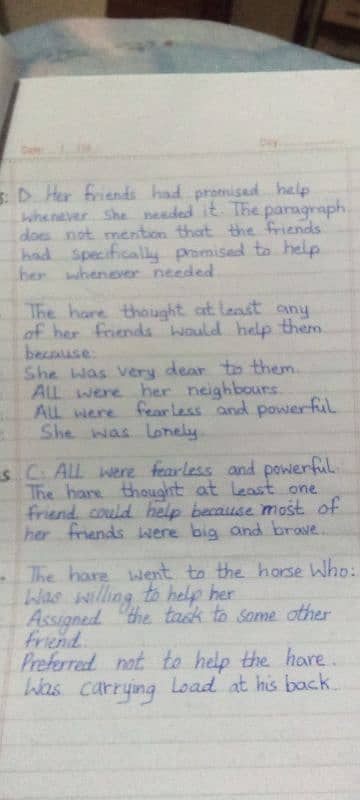 Date:
Day
s: D. Her friends had promised help
whenever she needed it. The paragraph
does not mention that the friends
had specifically promised to help
her whenever needed
The hare thought at least any
of her friends would help them
because:
She was very dear to them.
All were her neighbours.
All were fearless and powerful
She was lonely
s C: All were fearless and powerful.
The hare thought at least one
friend could help because most of
her friends were big and brave.
The hare went to the horse who:
Was willing to help her
Assigned the task to some other
friend.
Preferred not to help the hare.
Was carrying load at his back.